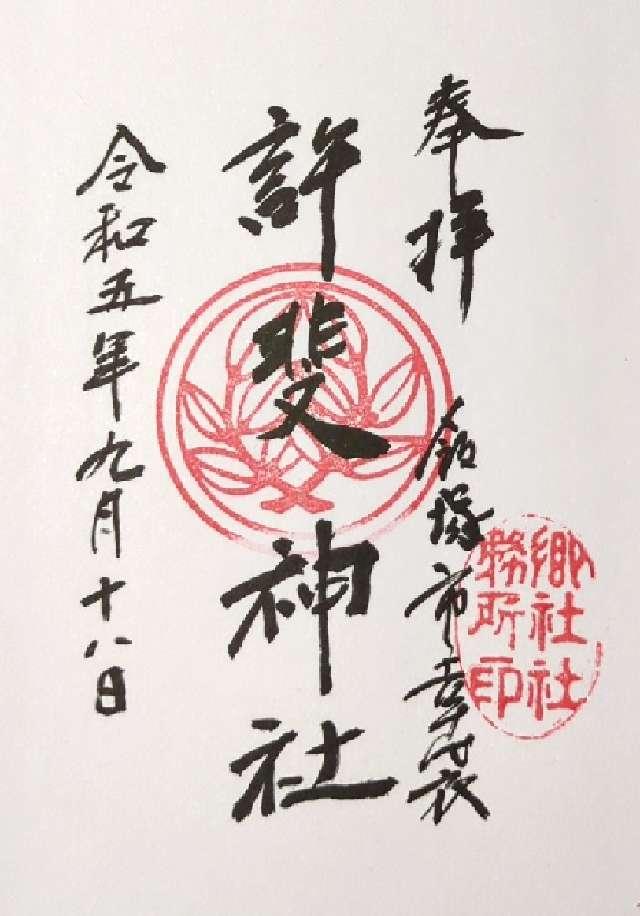 奉拝
飯塚市幸袋
郷社社
務所印
許斐神社
令和五年九月十八日